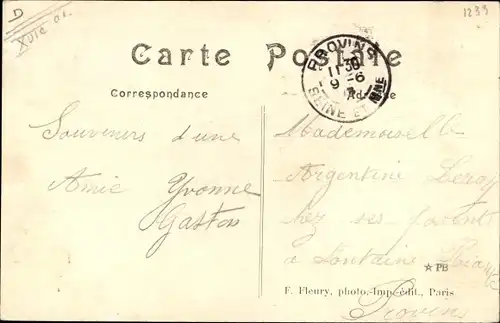 XVIe ar.
1233
Carte Postale
PROVINS
11 30
9 -6
SEINE ET MNE
Correspondance
Adresse
Souvenirs d'une
Amie Yvonne
Gaston
Mademoiselle
Argentine Leroy
chez ses parents
à Fontaine
Provins
★PB
F. Fleury, photo.-Imp.-édit., Paris